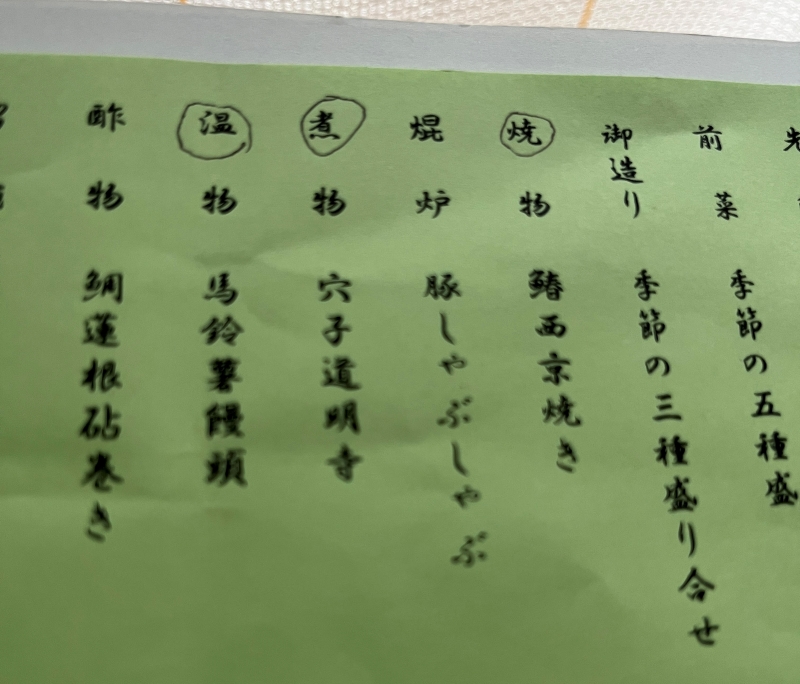 前菜 季節の五種盛
御造り 季節の三種盛り合せ
焼物 鰆西京焼き
焜炉 豚しゃぶしゃぶ
煮物 穴子道明寺
温物 馬鈴薯饅頭
酢物 鯛蓮根砧巻き